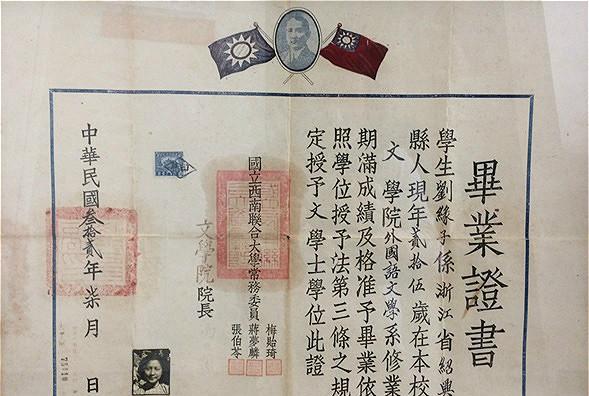 畢業證書
學生劉緣子係浙江省紹興
縣人現年貳拾伍歲在本校
文學院外國語文學系修業
期滿成績及格准予畢業依
照學位授予法第三條之規
定授予文學士學位此證
國立西南聯合大學常務委員
梅貽琦
蔣夢麟
張伯苓
文學院院長
中華民國叁拾貳年柒月 日